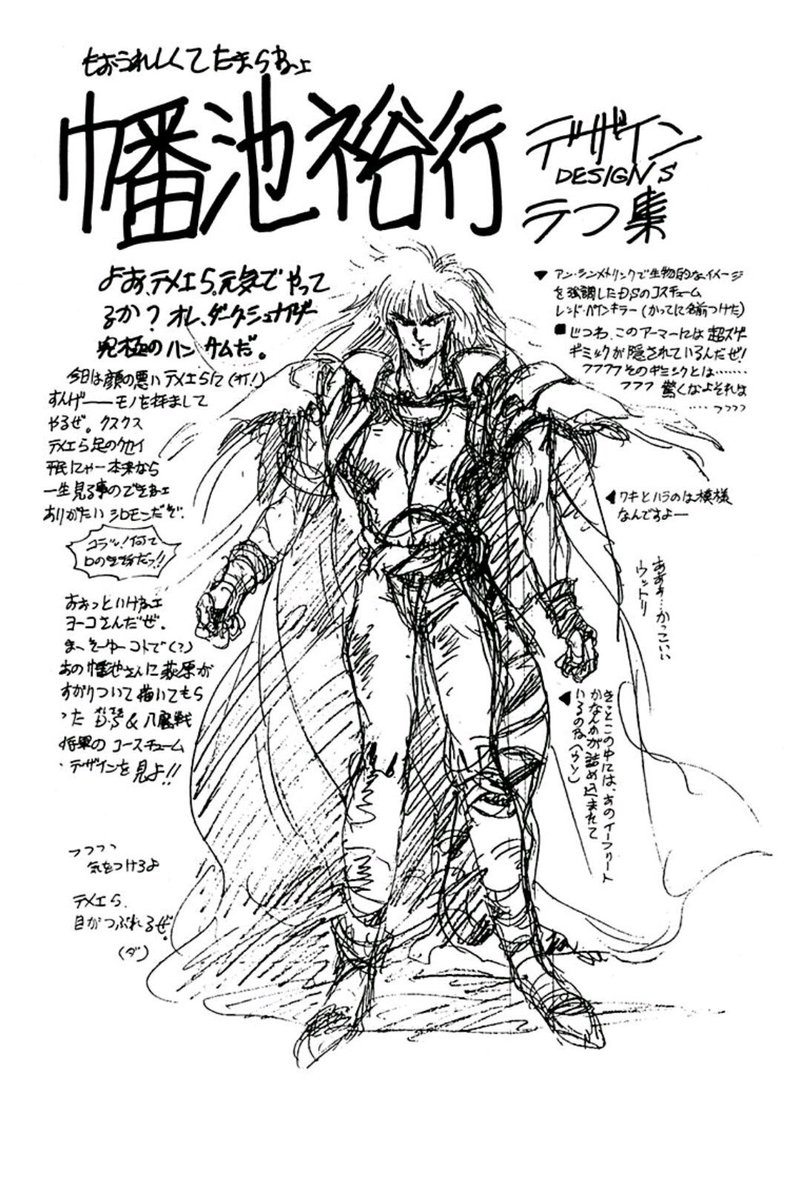 もおうれしくてたまらねーよ
幡池裕行
デザイン
DESIGNS
ラフ集
よお、テメエら、元気でやって
るか？オレ、ダークシュナイダー
究極のハンサムだ。
今日は顔の悪いテメエらに(オイ！)
すんげーーモノを拝まして
やるぜ。クスクス
テメエら足のクセイ
平民にゃー本来なら
一生見る事のできねエ
ありがたいシロモンだぞ。
コラッ！何て
口のきき方だっ!!
おおっといけねエ
ヨーコさんだぜ。
ま、そーゆーコトで(？)
あの幡池さんに萩原が
すがりついて描いてもら
った D・S & 八鬼戦
将軍のコースチューム
・デザインを見よ!!
フフフフ
気をつけろよ
テメエら、
目がつぶれるぜ。
(ダ)
▼アン・シンメトリックで生物的なイメージ
を強調したD・Sのコスチューム
レンド・パインキラー(かってに名前つけた)
■じつわ、このアーマーには超スゲ
ギミックが隠されているんだぜ！
フフフフそのギミックとは……
フフフ 驚くなよそれは
‥‥フフフフ
◀ワキとハラのは模様
なんですよー
ああ…かっこいい
ウットリ
◀きっとこの中には、あのイーフリート
かなんかが詰め込まれて
いるのね(うん)